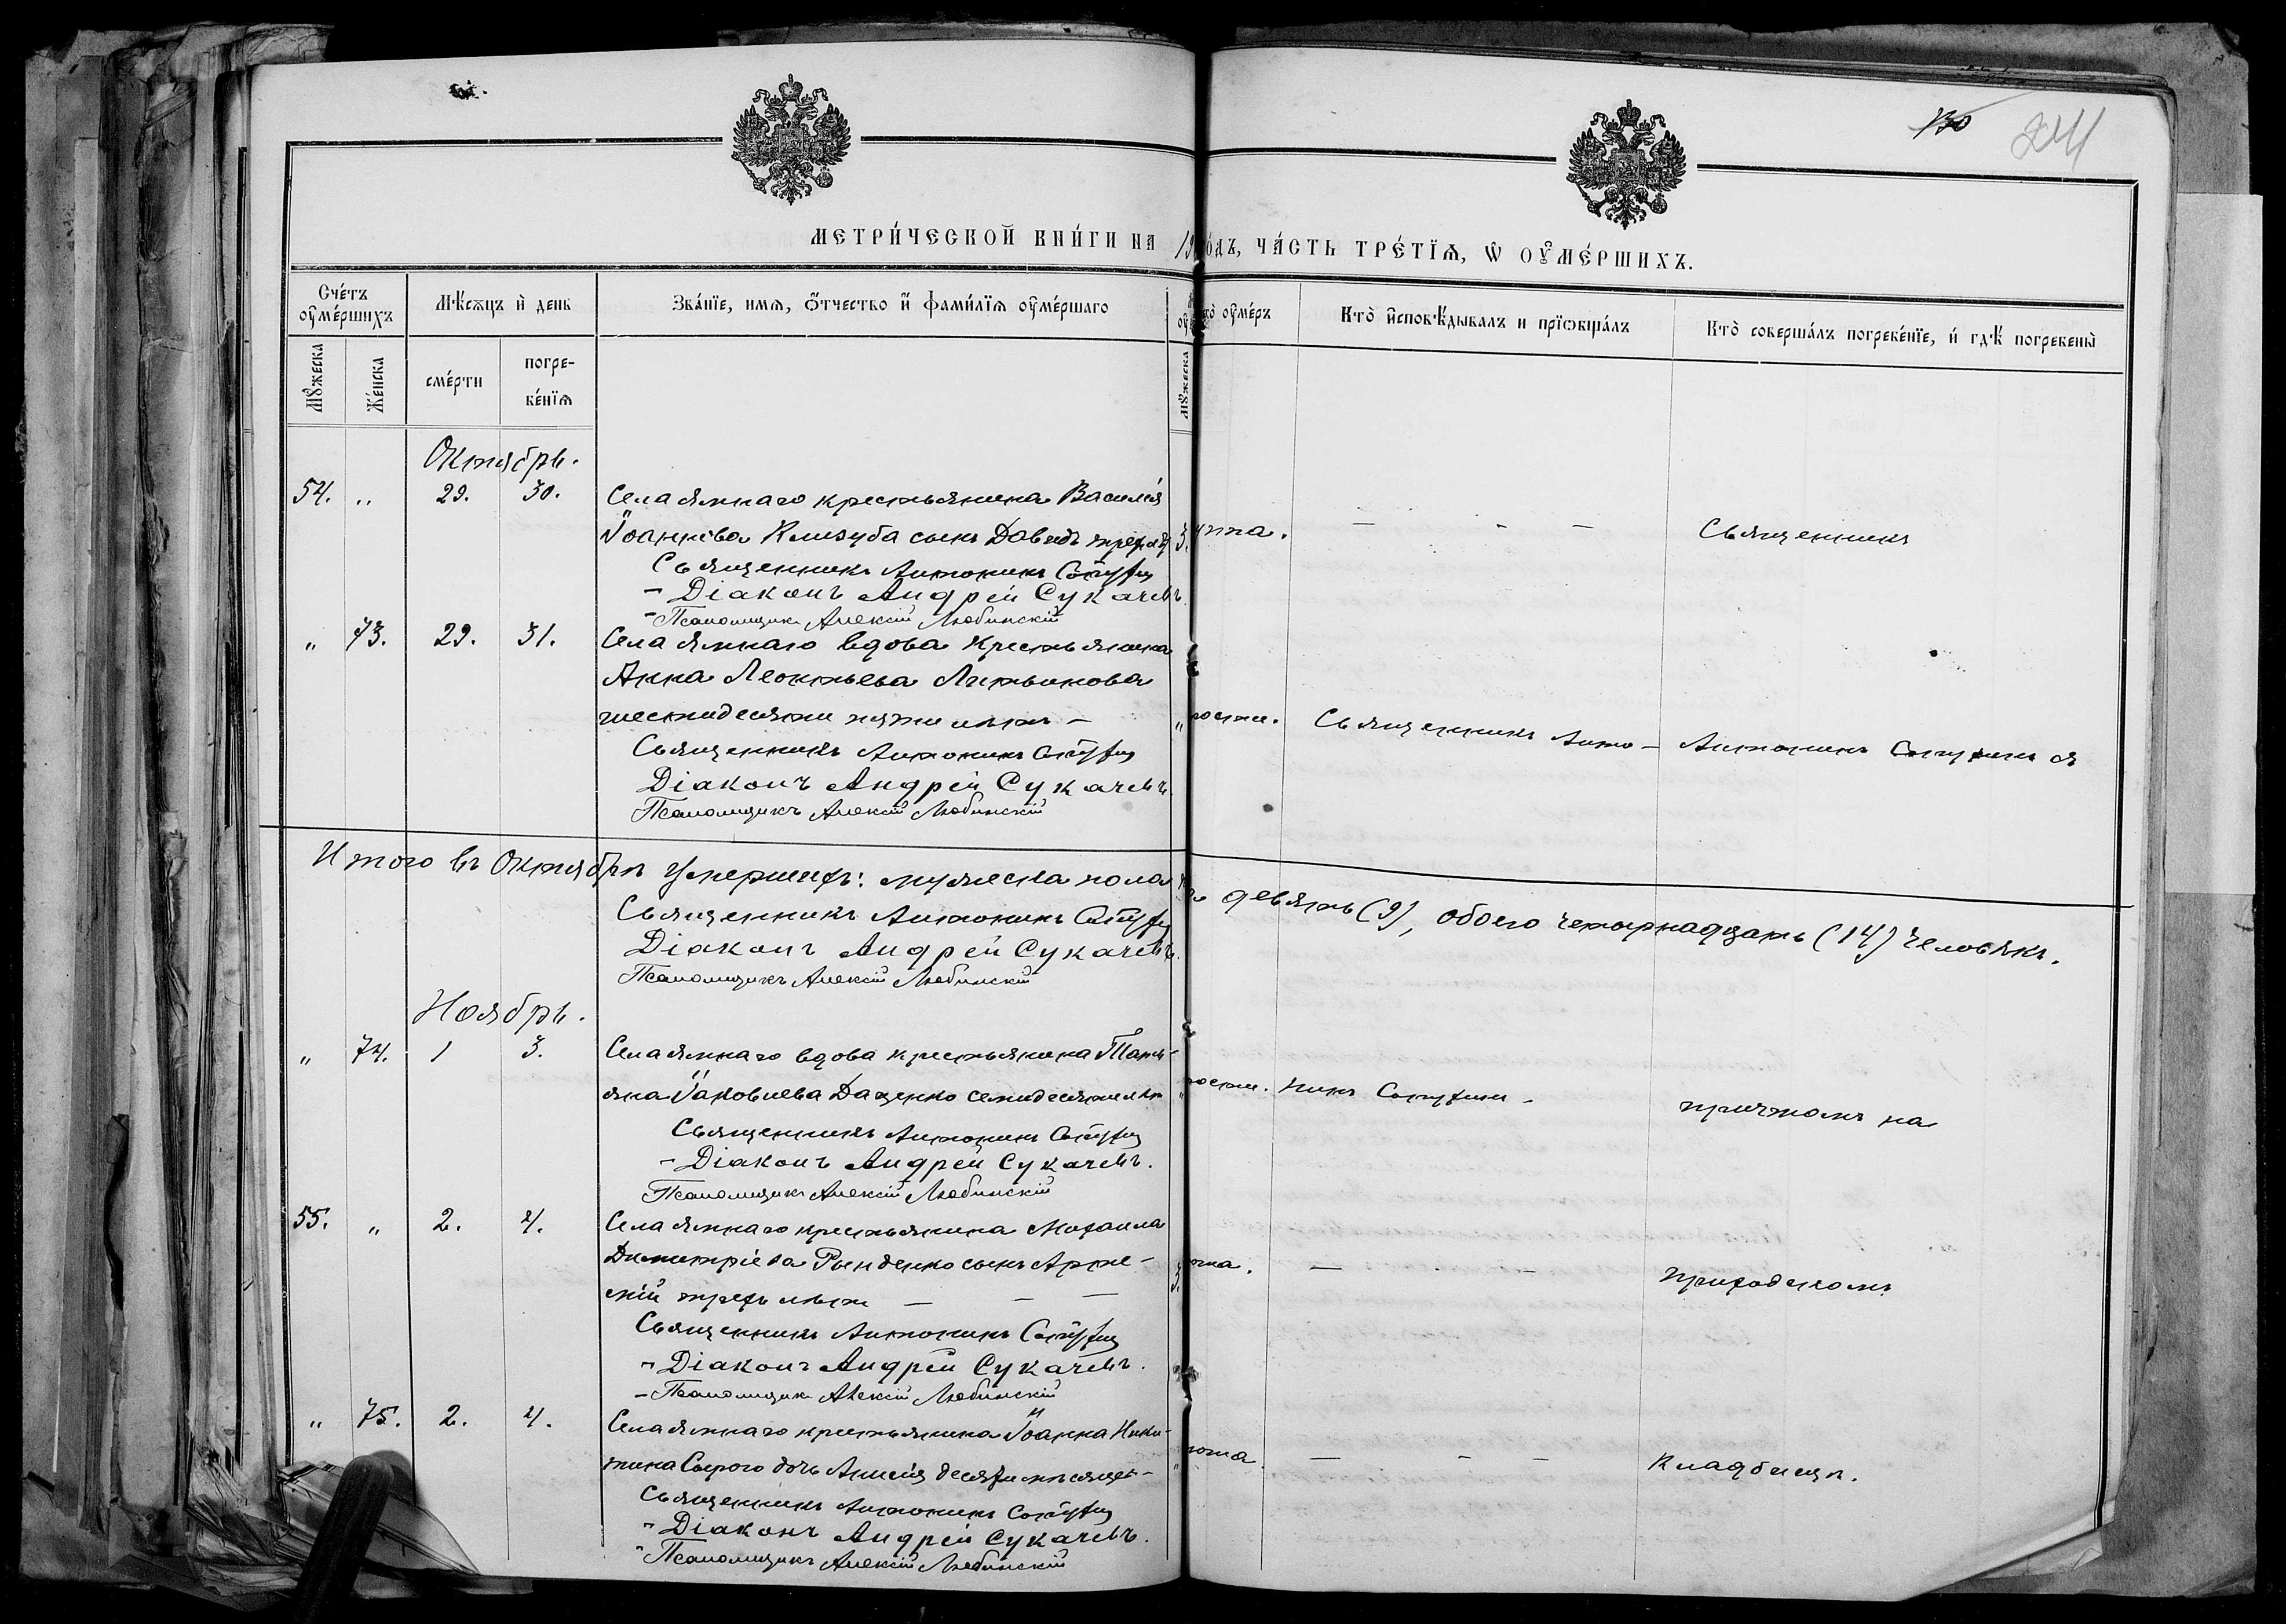 170
241
МЕТРИ́ЧЕСКОЙ КНИ́ГИ НА 19
О́ДЪ, ЧА́СТЬ ТРЕ́ТЇѦ, Ѡ ОУ҆МЕ́РШИХЪ.
Сче́тъ оу҆ме́ршихъ
Мѣ́сѧцъ и҆ день
Зва́нїе, имѧ, ѻ҆́тчество и҆ фами́лїѧ оу҆ме́ршаго
оу҆ме́ръ
Кто̀ и҆сповѣ́дывалъ и прїѡбща́лъ
Кто̀ соверша́лъ погребе́нїе, и҆ гдѣ́ погребены̀
Мꙋ́жеска
Же́нска
сме́рти
погре-
бе́нїѧ
Мꙋ́жеска
Октябрь.
54. „ 29. 30. Села Ямнаго крестьянина Василія
Іоаннова Клизуба сынъ Давидъ трехъ 3.
Священникъ
Священникъ Антонинъ
- Діаконъ Андрей Сукачевъ
- Псаломщикъ Алексій Любинскій
„ 73. 29. 31. Села Ямнаго вдова крестьянка
Анна Леонтьева Литвинова
шестидесяти пяти лѣтъ - „
Священникъ Анто- Антонинъ съ
Священникъ Антонинъ
Діаконъ Андрей Сукачевъ.
Псаломщикъ Алексій Любинскій
Итого въ Октябрѣ умершихъ: мужеска пола
девять (9), обоего четырнадцать (14) человѣкъ.
Священникъ Антонинъ
Діаконъ Андрей Сукачевъ.
Псаломщикъ Алексій Любинскій
Ноябрь.
„ 74. 1 3. Села Ямнаго вдова крестьянина Тать-
яна Іаковлева Даценко семидесяти лѣтъ „
нинъ
причтомъ на
Священникъ Антонинъ
- Діаконъ Андрей Сукачевъ.
Псаломщикъ Алексій Любинскій
55. „ 2. 4. Села Ямнаго крестьянина Михаила
Димитріева Рынденко сынъ Арте- 3.
мій трехъ лѣтъ - - -
приходскомъ
Священникъ Антонинъ
- Діаконъ Андрей Сукачевъ.
- Псаломщикъ Алексій Любинскій
„ 75. 2. 4. Села Ямнаго крестьянина Іоанна Ники-
тина Сырого дочь Анисія десяти мѣсяцевъ - „
кладбищѣ.
Священникъ Антонинъ
- Діаконъ Андрей Сукачевъ.
- Псаломщикъ Алексій Любинскій